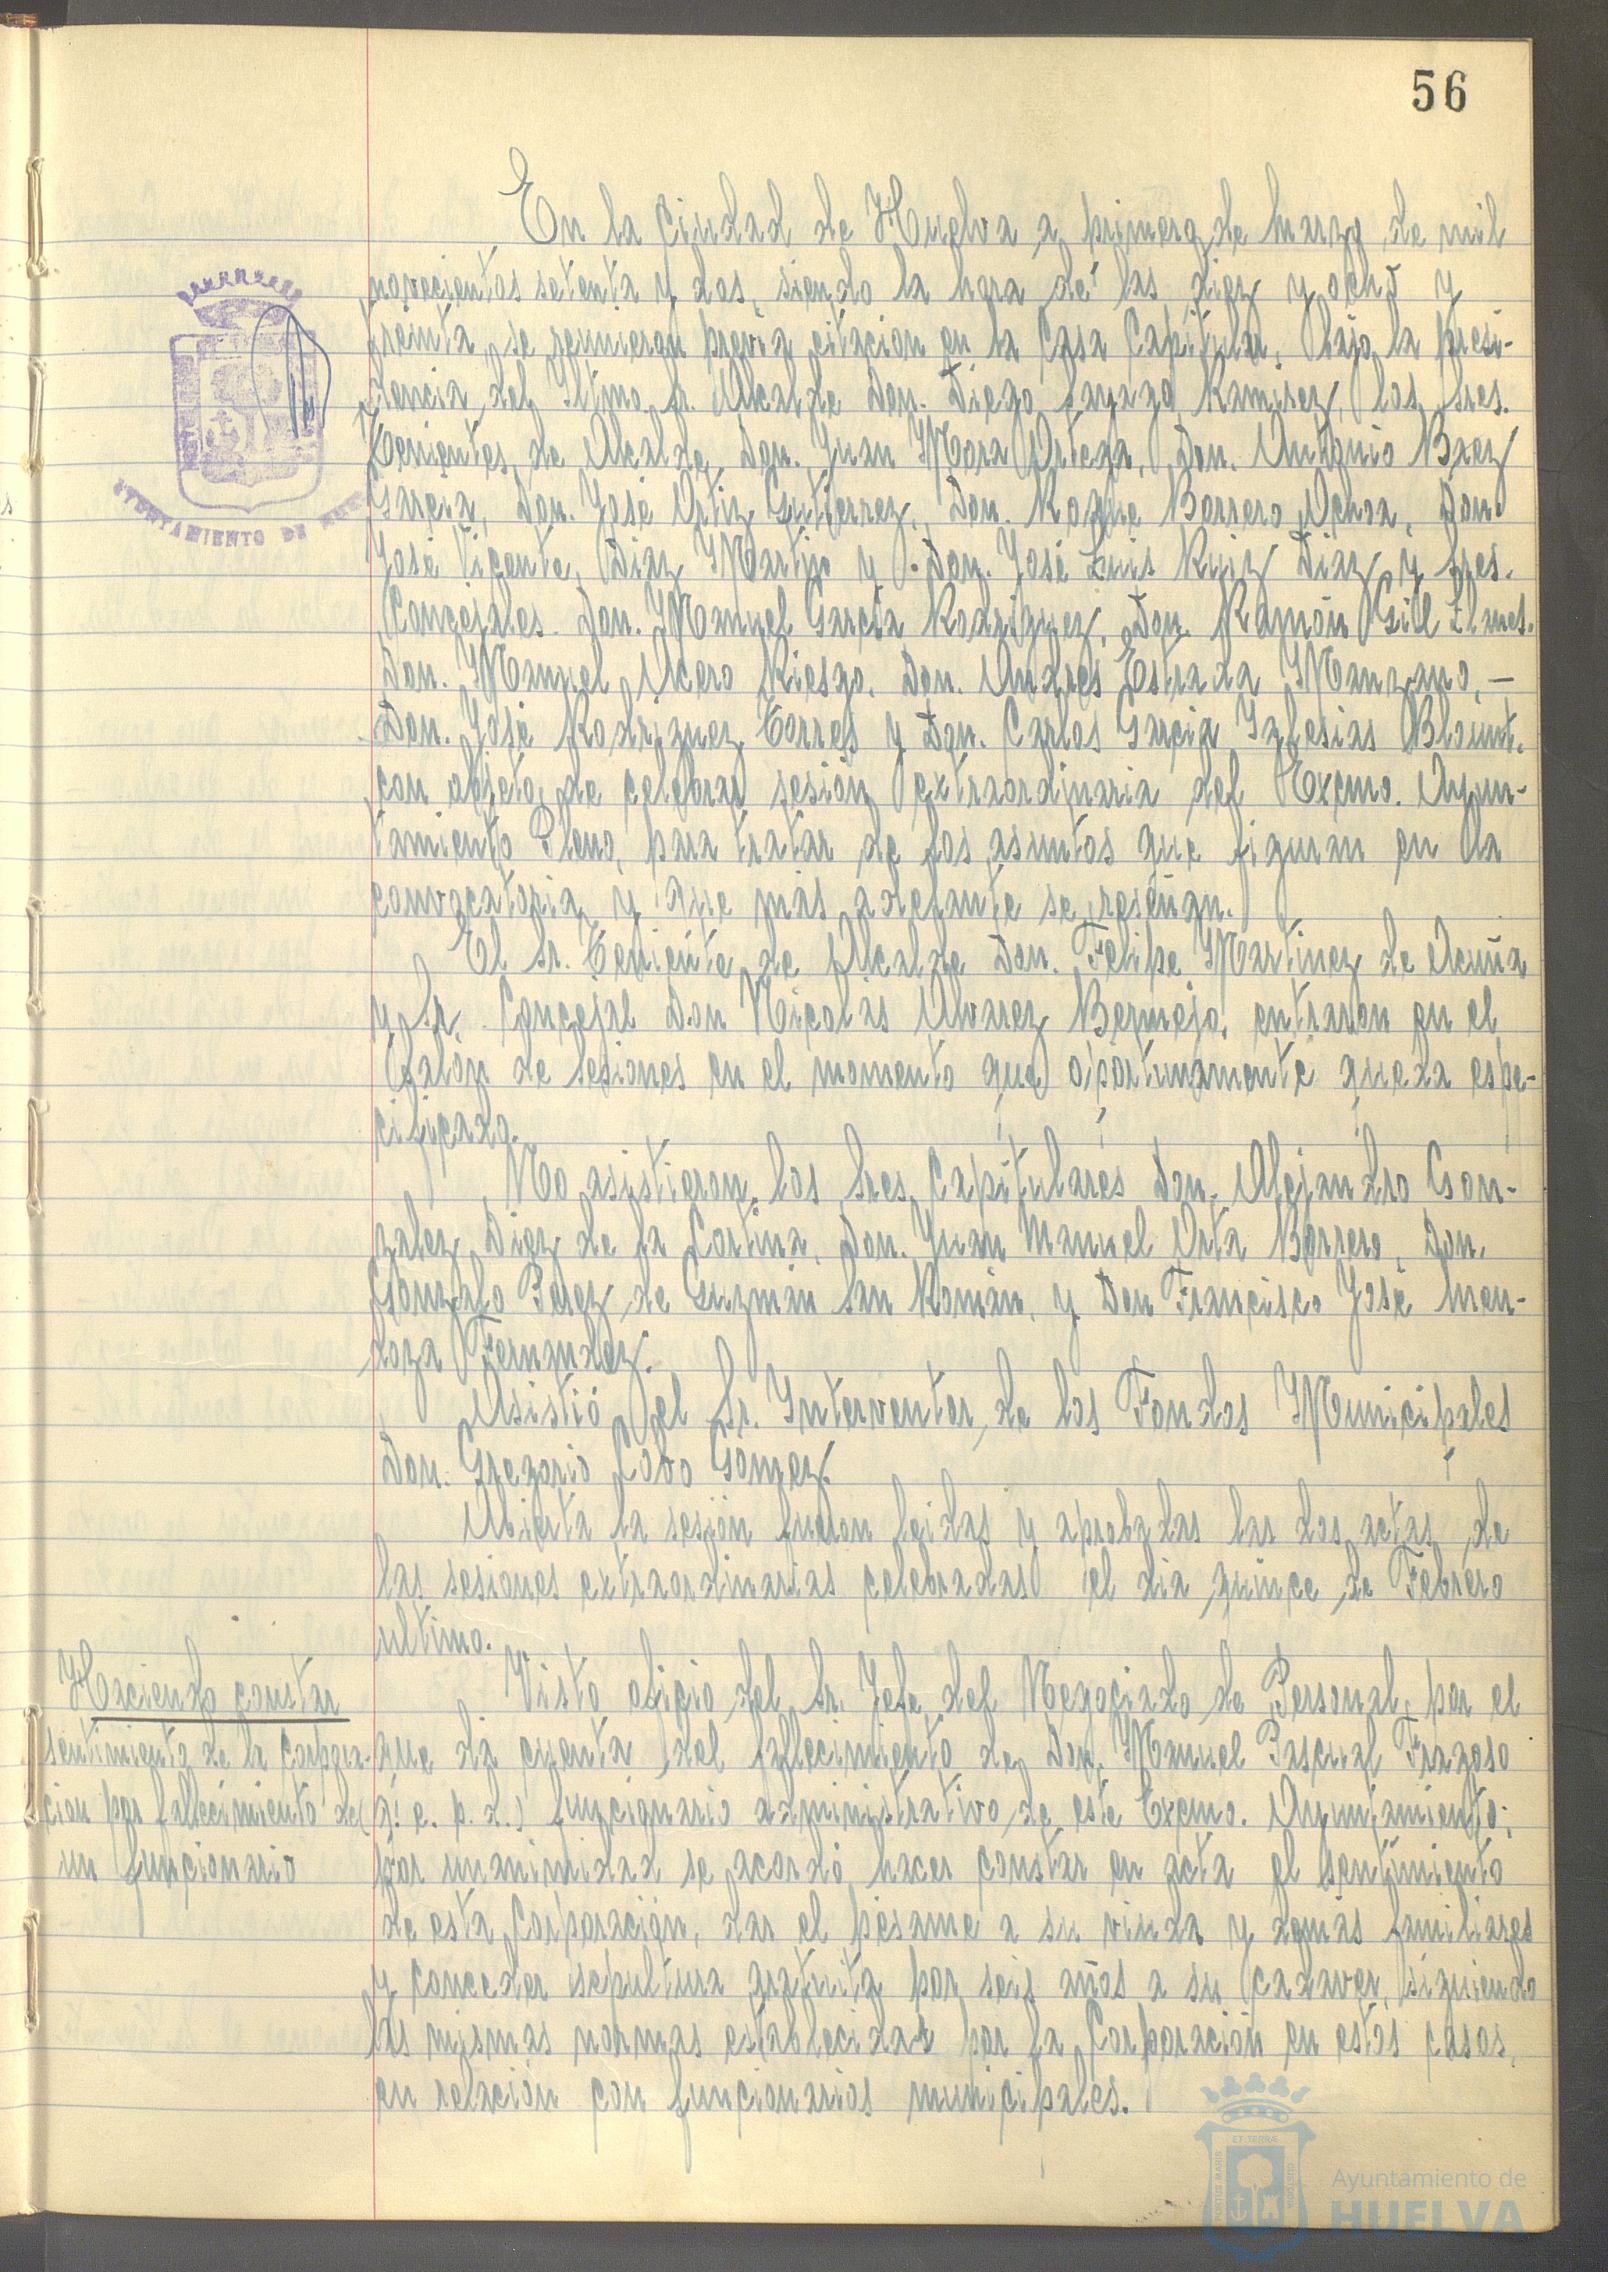 56
En la Ciudad de Huelva a primero de marzo de mil
novecientos setenta y dos, siendo la hora de las diez y ocho y
treinta, se reunieron previa citación en la Casa Capitular, bajo la presi-
dencia del Iltmo. Sr. Alcalde Don. Diego Sayago Ramirez, los Sres.
Tenientes de Alcalde, Don. Juan Mora Ortega, Don. Antonio Baez
García, Don. José Ortiz Gutierrez, Don. Roque Borrero Ochoa, Don
José Vicente Diaz Martin y Don. José Luis Ruiz Diaz y Sres.
Concejales. Don. Manuel García Rodriguez, Don. Ramón Gill Llanes.
Don. Manuel Acero Riesgo. Don. Andres Estrada Manzano, —
Don. José Rodriguez Torres y Don. Carlos Garcia Iglesias Blount.
con objeto de celebrar sesión extraordinaria del Excmo. Ayun-
tamiento Pleno, para tratar de los asuntos que figuran en la
convocatoria y que más adelante se reseñan.
El Sr. Teniente de Alcalde Don. Felipe Martinez de Acuña
y Sr. Concejal Don Nicolás Alvarez Bermejo, entraron en el
Salón de Sesiones en el momento que oportunamente queda espe-
cificado.
No asistieron los Sres. Capitulares Don. Alejandro Gon-
zalez Diez de la Cortina, Don. Juan Manuel Orta Borrero, Don.
Gonzalo Perez de Guzmán San Román, y Don Francisco José Men-
doza Fernandez.
Asistió el Sr. Interventor de los Fondos Municipales
Don. Gregorio Cobo Gomez.
Abierta la sesión fueron leidas y aprobadas las dos actas de
las sesiones extraordinarias celebradas el dia quince de Febrero
ultimo.
Haciendo constar
sentimiento de la Corpora-
ción por fallecimiento de
un funcionario
Visto oficio del Sr. Jefe del Negociado de Personal, por el
que dá cuenta del fallecimiento de Don. Manuel Pascual Fragoso
(q. e. p. d.) funcionario administrativo de este Excmo. Ayuntamiento;
por unanimidad se acordó hacer constar en acta el sentimiento
de esta Corporación, dar el pésame a su viuda y demás familiares
y conceder sepultura gratuita por seis años a su cadaver, siguiendo
las mismas normas establecidas por la Corporación en estos casos,
en relación con funcionarios municipales.
AYUNTAMIENTO DE
PORTUS MARIS ET TERRAE CUSTODIA
Ayuntamiento de
HUELVA